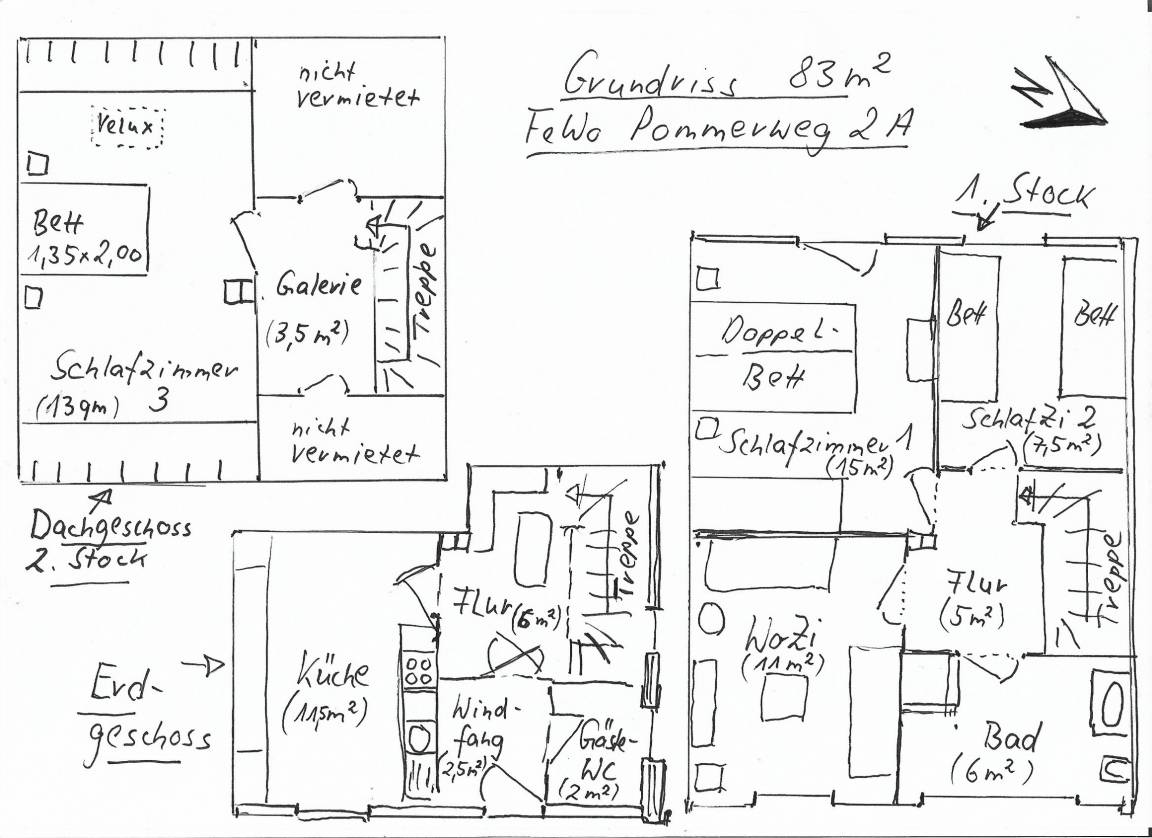 Grundriss 83 m²
FeWo Pommerweg 2 A
N
nicht
vermietet
Velux
Bett
1,35 x 2,00
Galerie
(3,5 m²)
Treppe
Schlafzimmer
(13 qm) 3
nicht
vermietet
Dachgeschoss
2. Stock
1. Stock
Doppel-
Bett
Bett
Bett
Schlafzimmer 1
(15 m²)
SchlafZi 2
(7,5 m²)
Flur
(5 m²)
Treppe
WoZi
(11 m²)
Bad
(6 m²)
Erd-
geschoss
Küche
(11,5 m²)
Flur (6 m²)
Treppe
Wind-
fang
(2,5 m²)
Gäste-
WC
(2 m²)